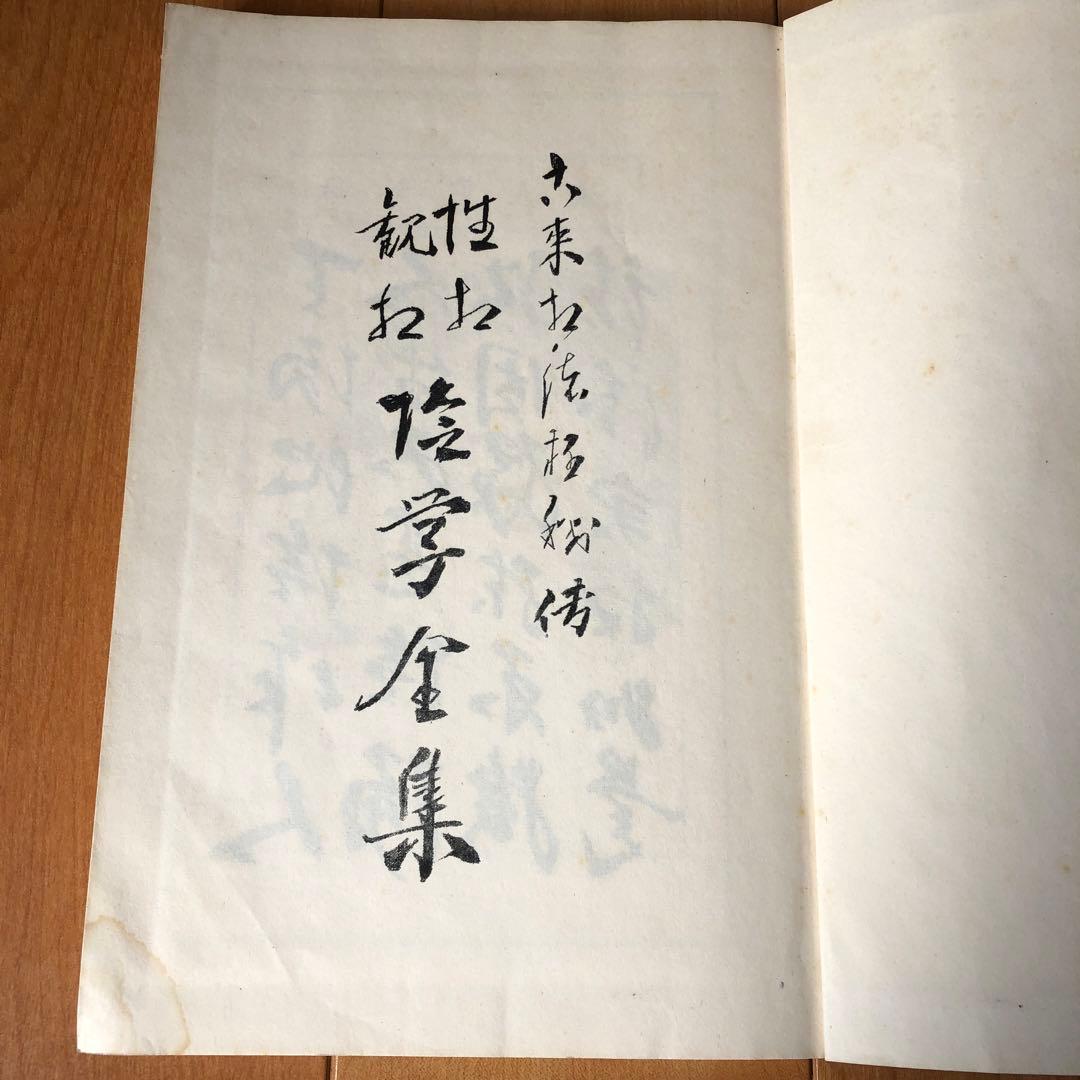 古来相法極秘传
性相
観相
陰学全集